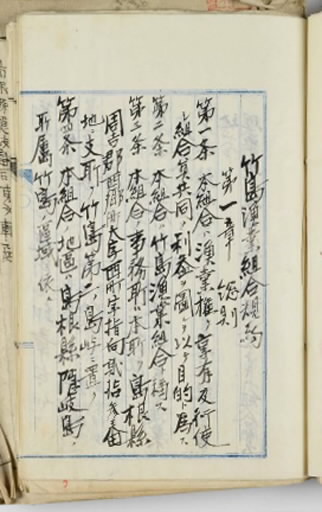 竹島漁業組合規約
第一章 総則
第一条 本組合ハ漁業権ノ享有及行使
組合員共同ノ利益ヲ図ルヲ以テ目的ト為ス
第二条 本組合ハ竹島漁業組合ト称ス
第三条 本組合ノ事務所ハ本所ヲ島根縣
周吉郡西郷町大字西町字指向
地ニ支所ヲ竹島第二ノ島ニ置ク
第四条 本組合ノ地區ハ島根縣隠岐島
所属竹島ノ區域ニ依ル